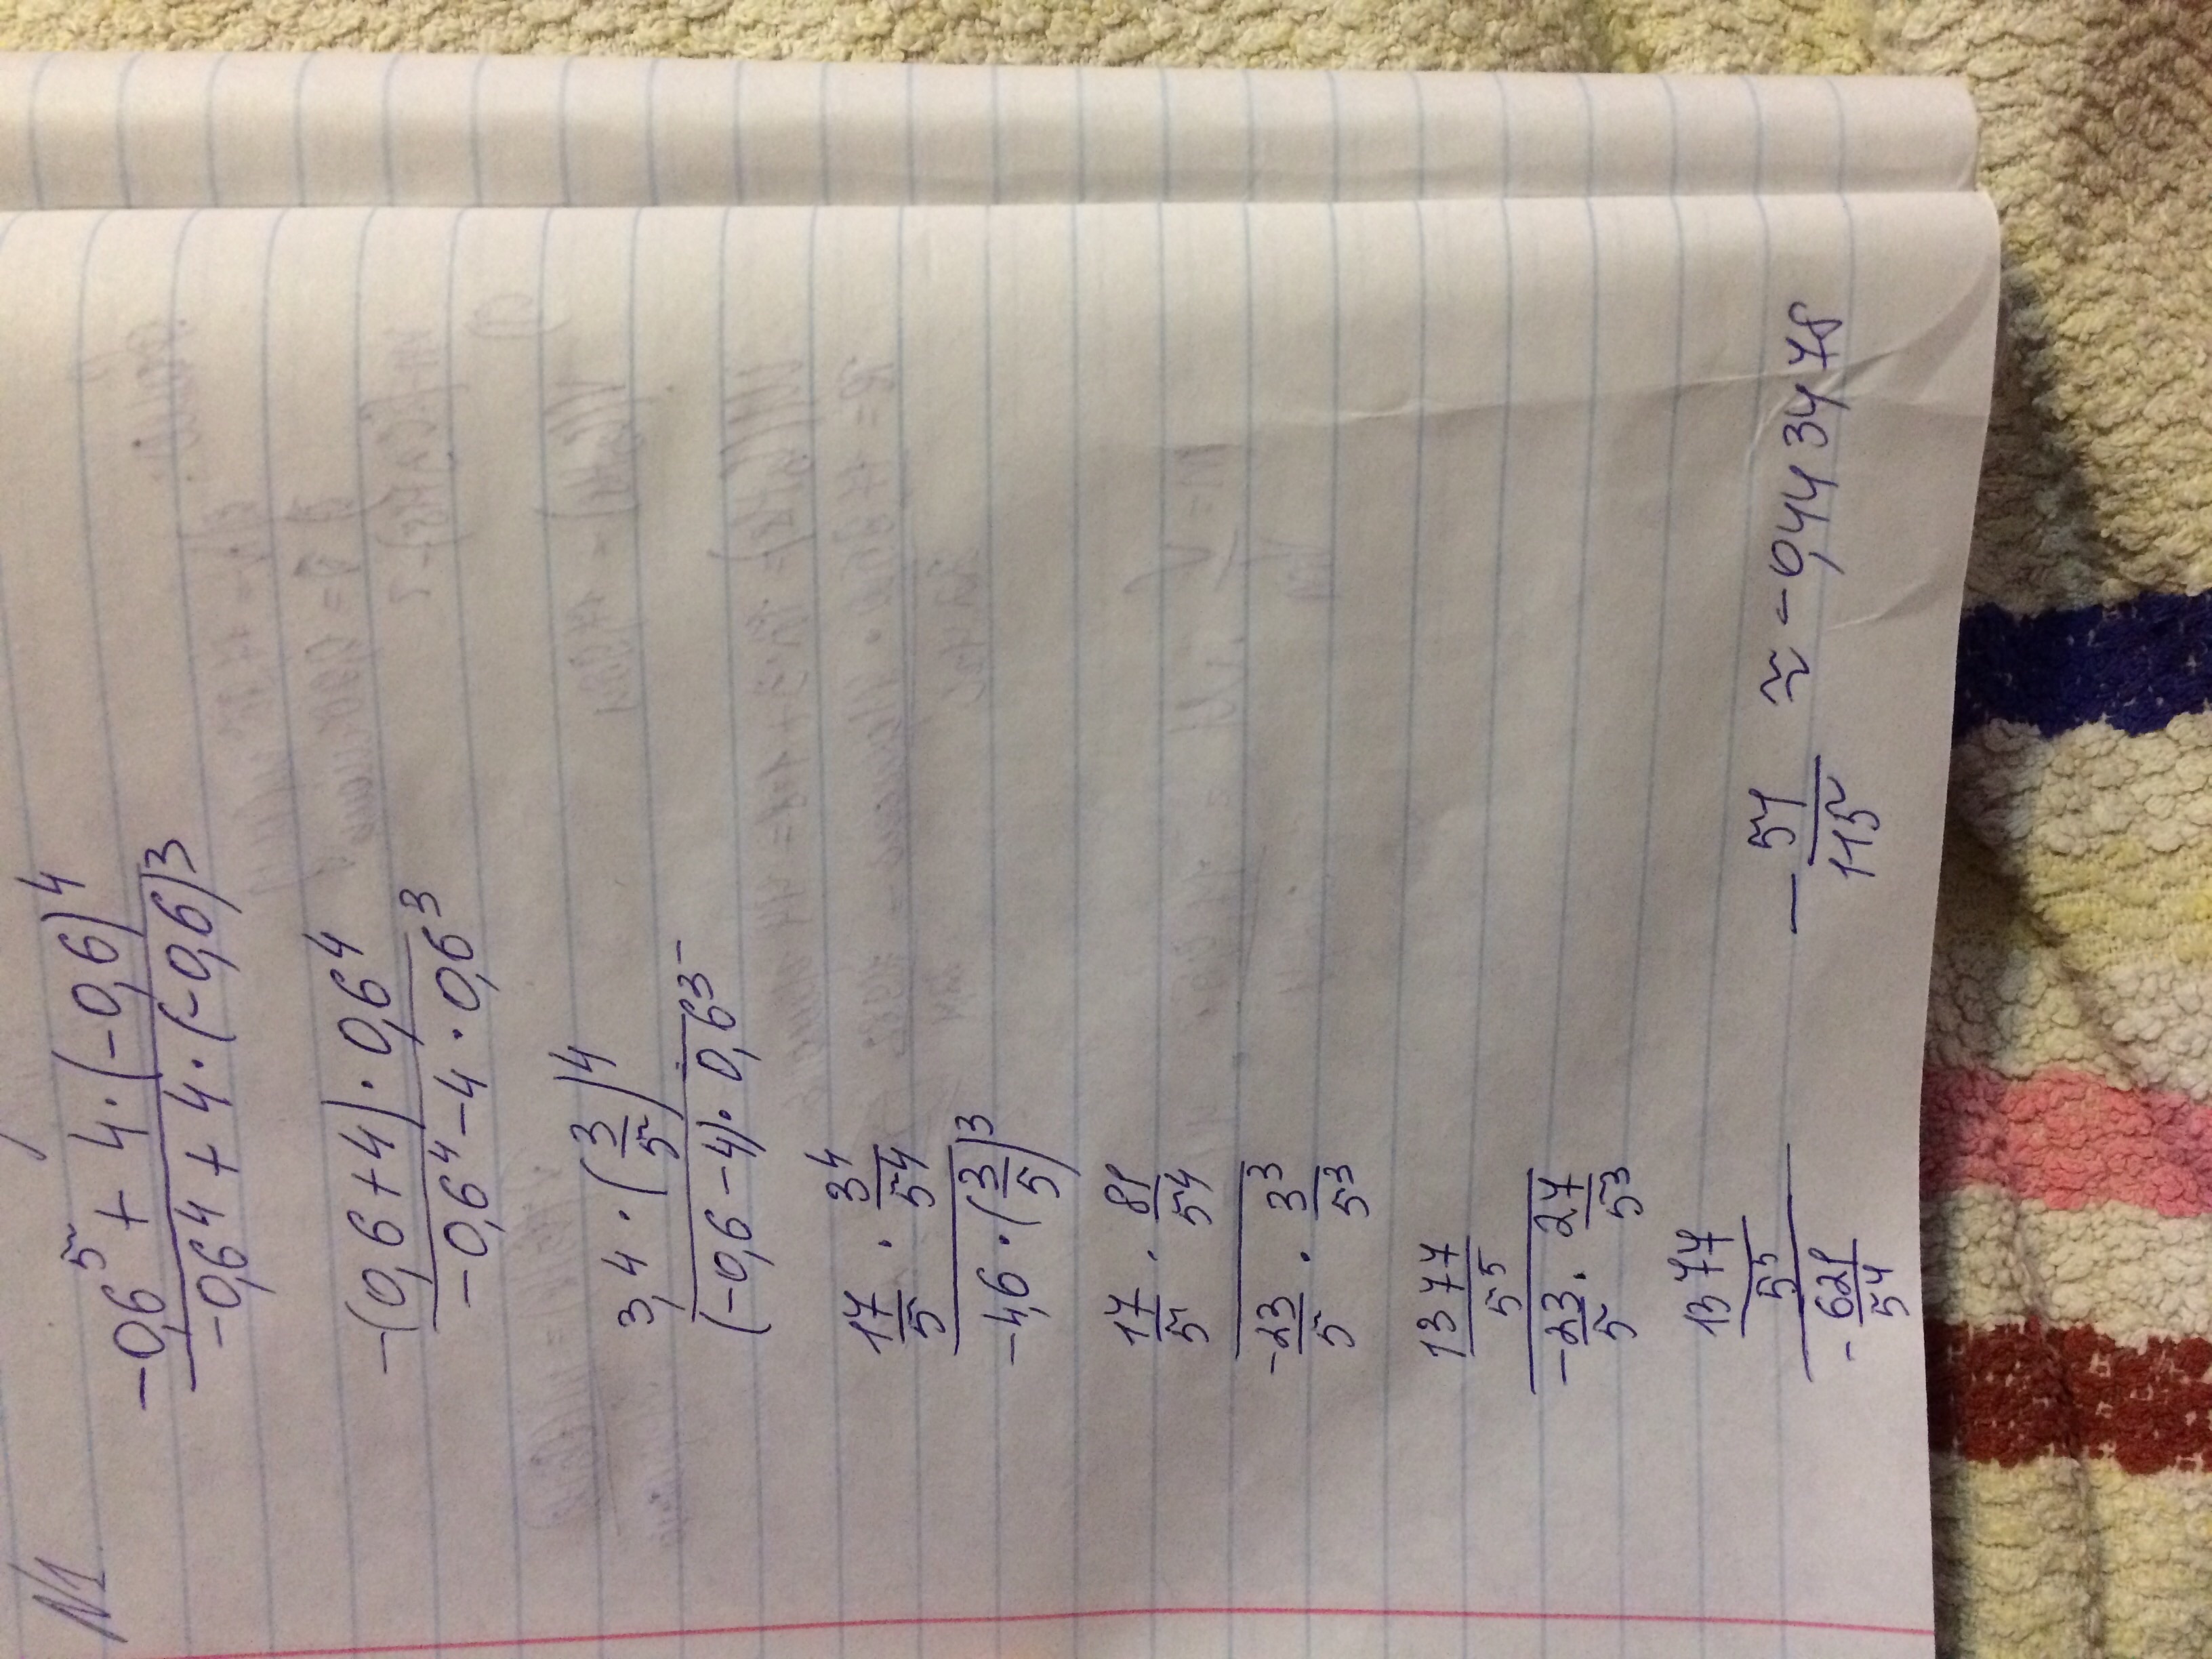 N1
-0,6⁵ + 4·(-0,6)⁴
-0,6⁴ + 4·(-0,6)³
-(0,6+4)·0,6⁴
-0,6⁴-4·0,6³
3,4·(3/5)⁴
(-0,6-4)·0,6³
17/5 · 3⁴/5⁴
-4,6·(3/5)³
17/5 · 81/5⁴
-23/5 · 3³/5³
1377/5⁵
-23/5 · 27/5³
1377/5⁵
-621/5⁴
-51/115 ≈ -0,443478